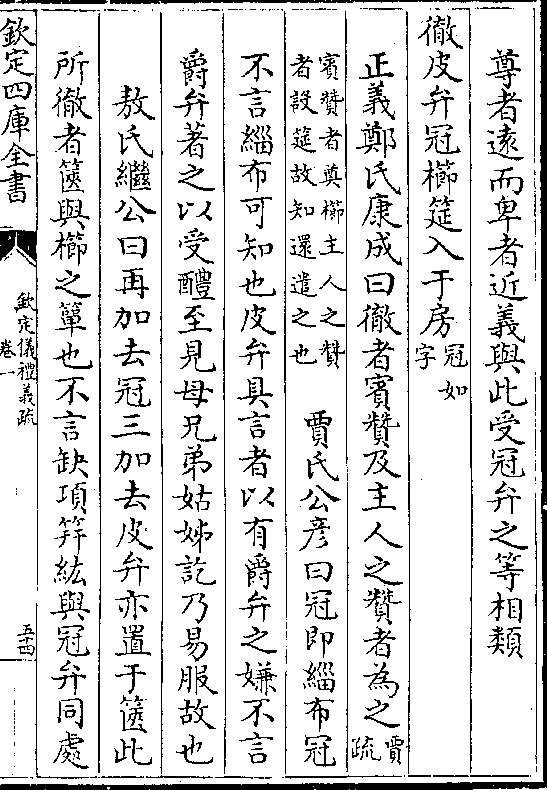 尊者遠而卑者近義與此受冠弁之等相類
徹皮弁冠櫛筵入于房冠如字
正義鄭氏康成曰徹者賓贊及主人之贊者為之賈疏
賓贊者奠櫛主人之贊者設筵故知還遣之也 賈氏公彥曰冠即緇布冠
不言緇布可知也皮弁具言者以有爵弁之嫌不言
爵弁著之以受醴至見母兄弟姑姊訖乃易服故也
敖氏繼公曰再加去冠三加去皮弁亦置于篋此
所徹者篋與櫛之簞也不言缺項笄紘與冠弁同處
欽定四庫全書
欽定儀禮義疏
卷一
五四